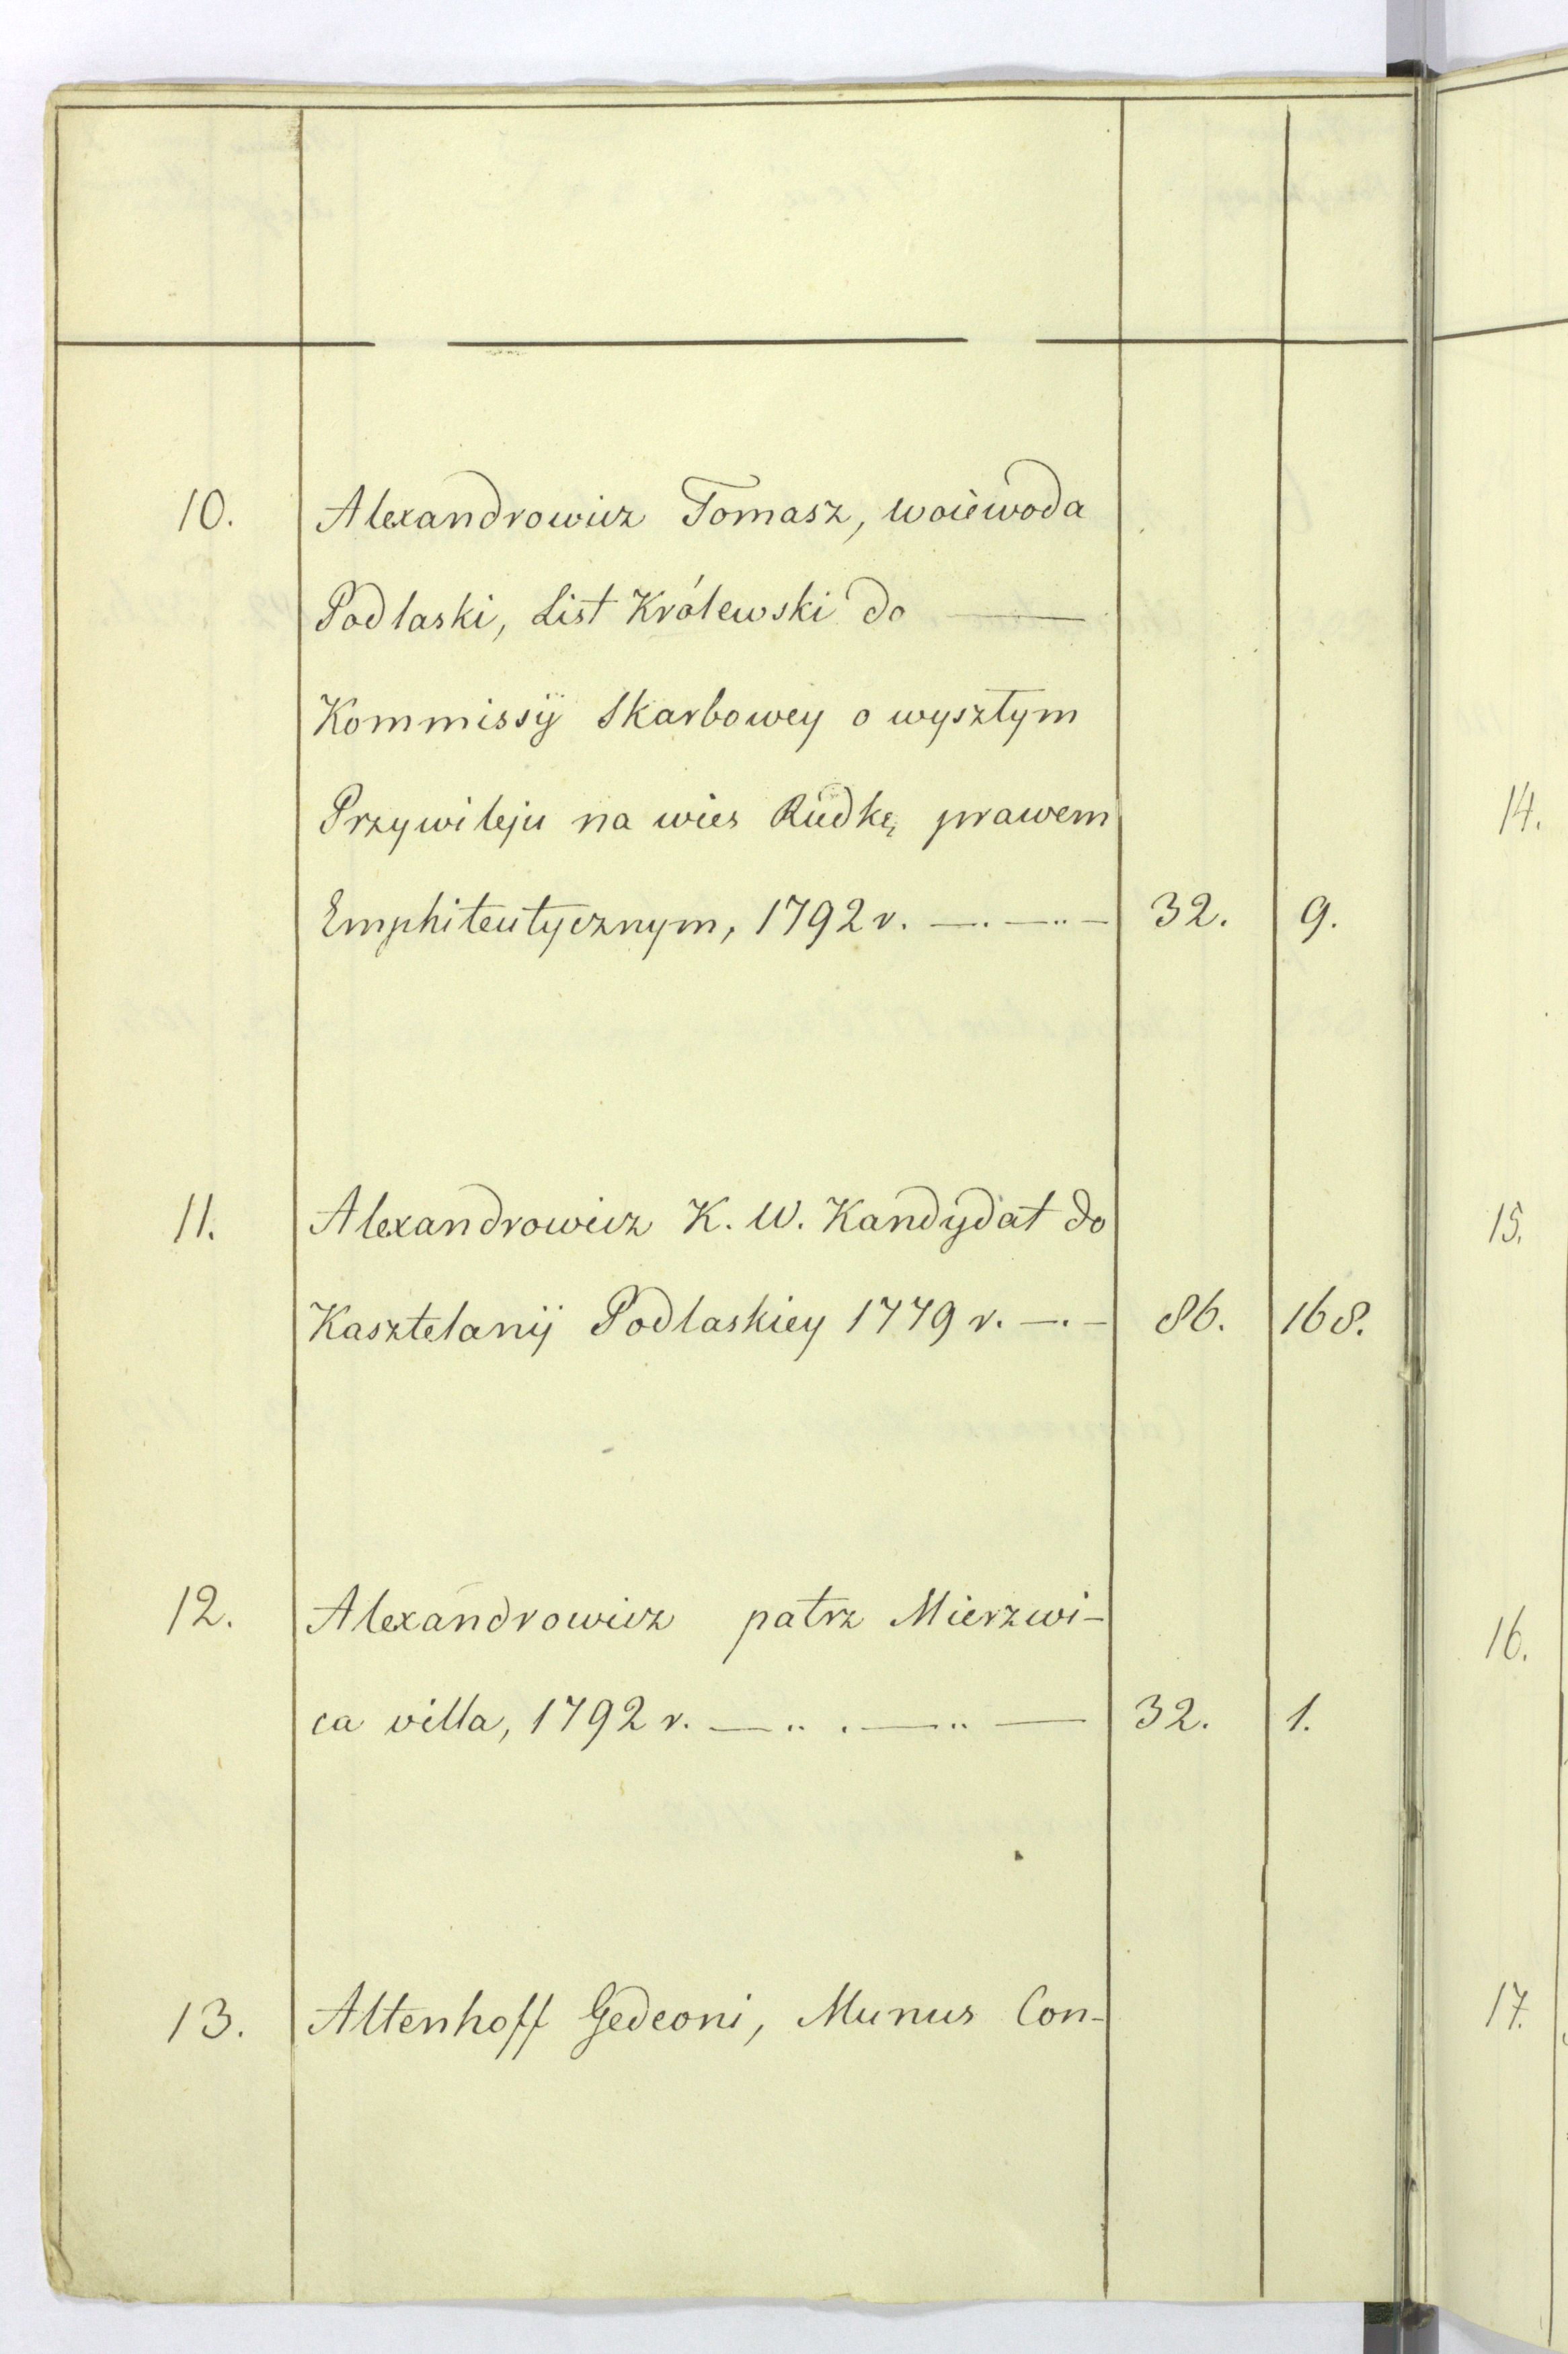 10. Alexandrowicz Tomasz, woiewoda
Podlaski, List Królewski do —
Kommissÿ Skarbowey o wyszłym
Przywileju na wies Rudkę prawem
Emphiteutycznym, 1792 r. —. —.. — 32. 9.
11. Alexandrowicz K. W. Kandydat do
Kasztelanÿ Podlaskiey 1779 r. —. — 86. 168.
12. Alexandrowicz patrz Mierzwi-
ca villa, 1792 r. —.. . —.. — 32. 1.
13. Altenhoff Gedeoni, Munus Con-
14.
15.
16.
17.